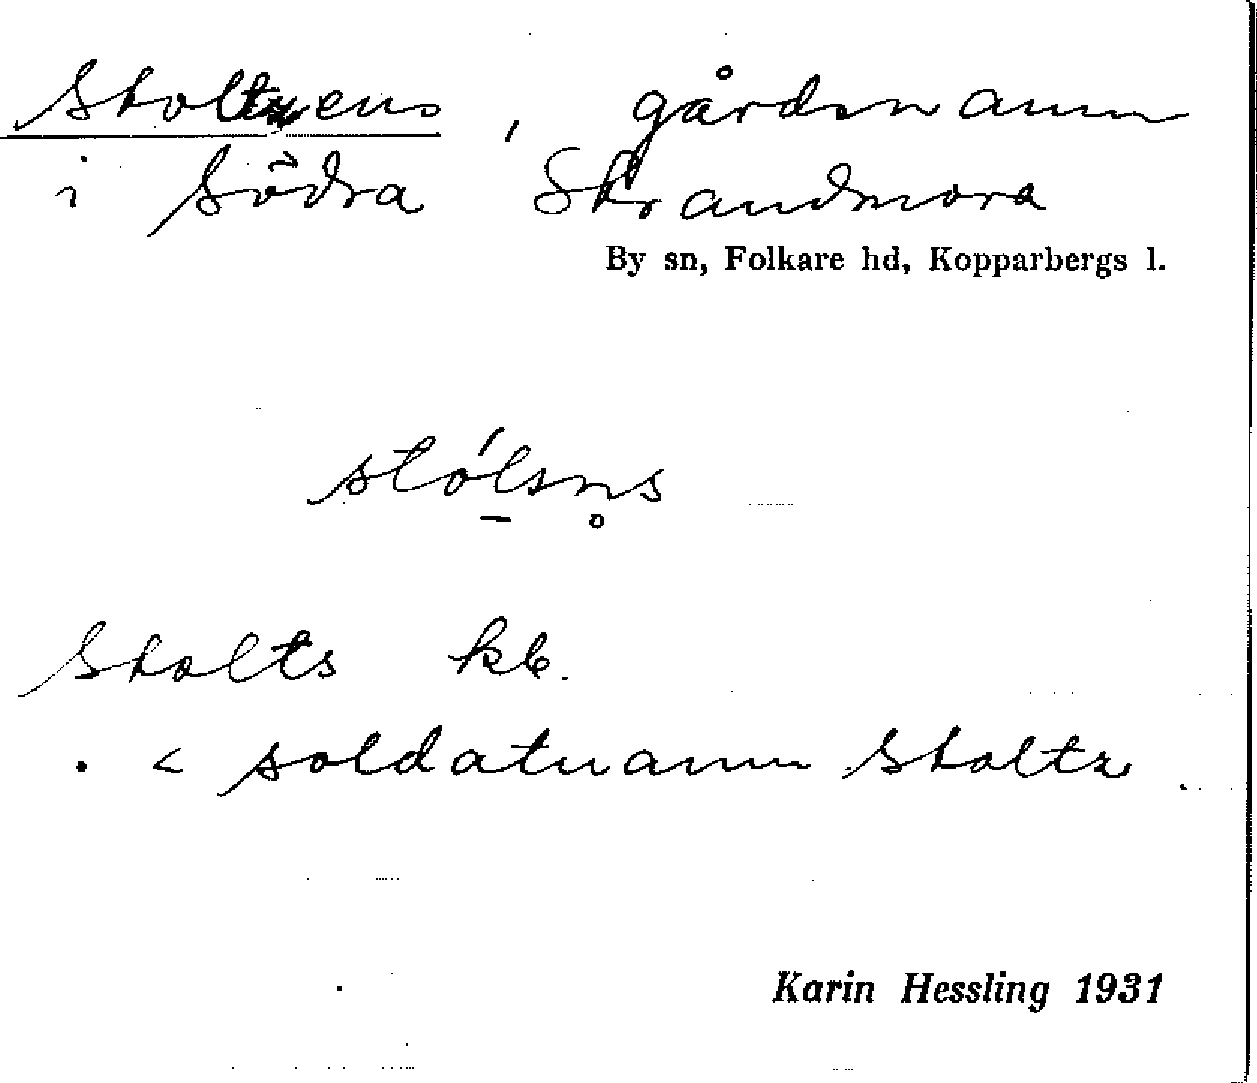 Stoltzens, gårdsnamn
i Södra Strandmora
By sn, Folkare hd, Kopparbergs l.
stó̱lsn̥s
Stolts kb.
< soldatnamn Stoltz.
Karin Hessling 1931